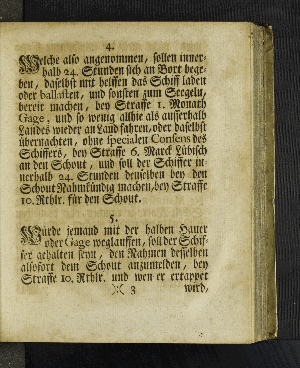 4.
Welche also angenommen, sollen inner-
halb 24. Stunden sich an Bort bege-
ben, daselbst mit helffen das Schiff laden
oder ballasten, und sonsten zum Seegeln,
bereit machen, bey Straffe 1. Monath
Gage, und so wenig allhie als ausserhalb
Landes wieder an Land fahren, oder daselbst
übernachten, ohne specialen Consens des
Schiffers, bey Straffe 6. Marck Lübisch
an den Schout, und soll der Schiffer in-
nerhalb 24. Stunden denselben bey den
Schout Nahmkündig machen, bey Straffe
10. Rthlr. für den Schout.
5.
Würde jemand mit der halben Hauer
oder Gage weglauffen, soll der Schif-
fer gehalten seyn, den Nahmen desselben
alsofort dem Schout anzumelden, bey
Straffe 10. Rthlr. und wen er ertappet
)( 3 wird,